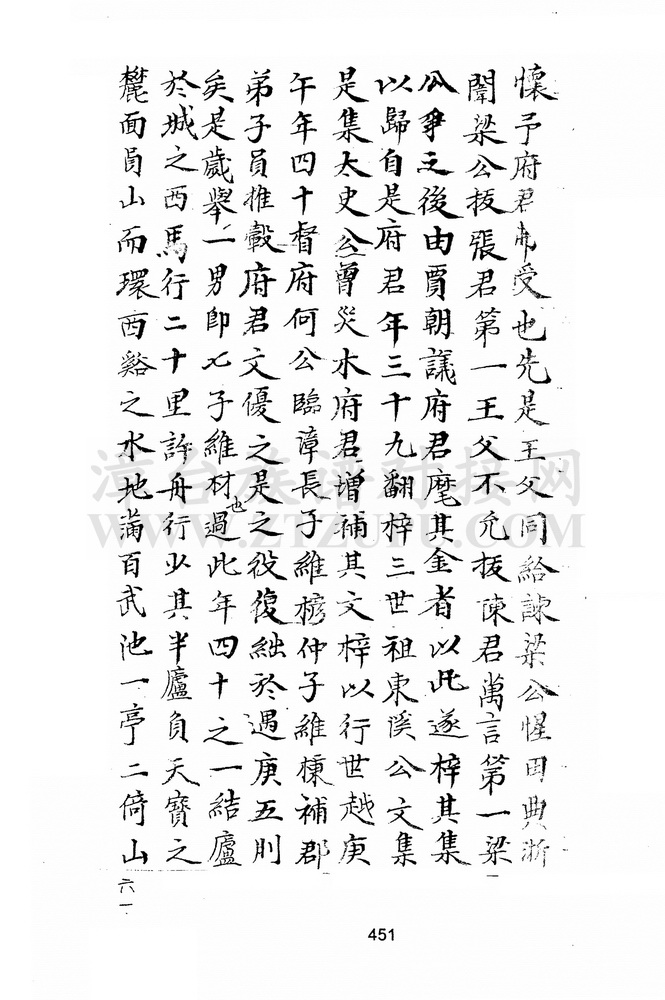 懷予府君弗受也先是王父同給諫梁公惺田典浙
闈梁公拔張君第一王父不允拔陳君萬言第一梁
公爭之後由賈朝議府君麾其金者以此遂梓其集
以歸自是府君年三十九翻梓三世祖東溪公文集
是集太史公曾災水府君增補其文梓以行世越庚
午年四十督府何公臨漳長子維榜仲子維棟補郡
弟子員推轂府君文優之是之役復絀於遇庚五則
矣是歲舉一男即七子維材也過此年四十之一結廬
於城之西馬行二十里許舟行少其半廬負天寶之
麓面員山而環西谿之水地滿百武池一亭二倚山
六一
451
漳台族譜对接网
WWW.ZTZUPU.COM